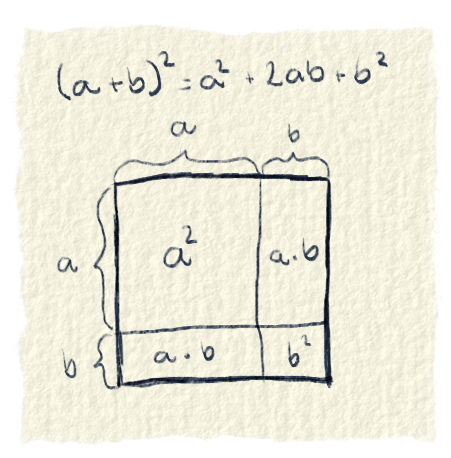 (a+b)² = a² + 2ab + b²
a b
a a² a·b
b a·b b²